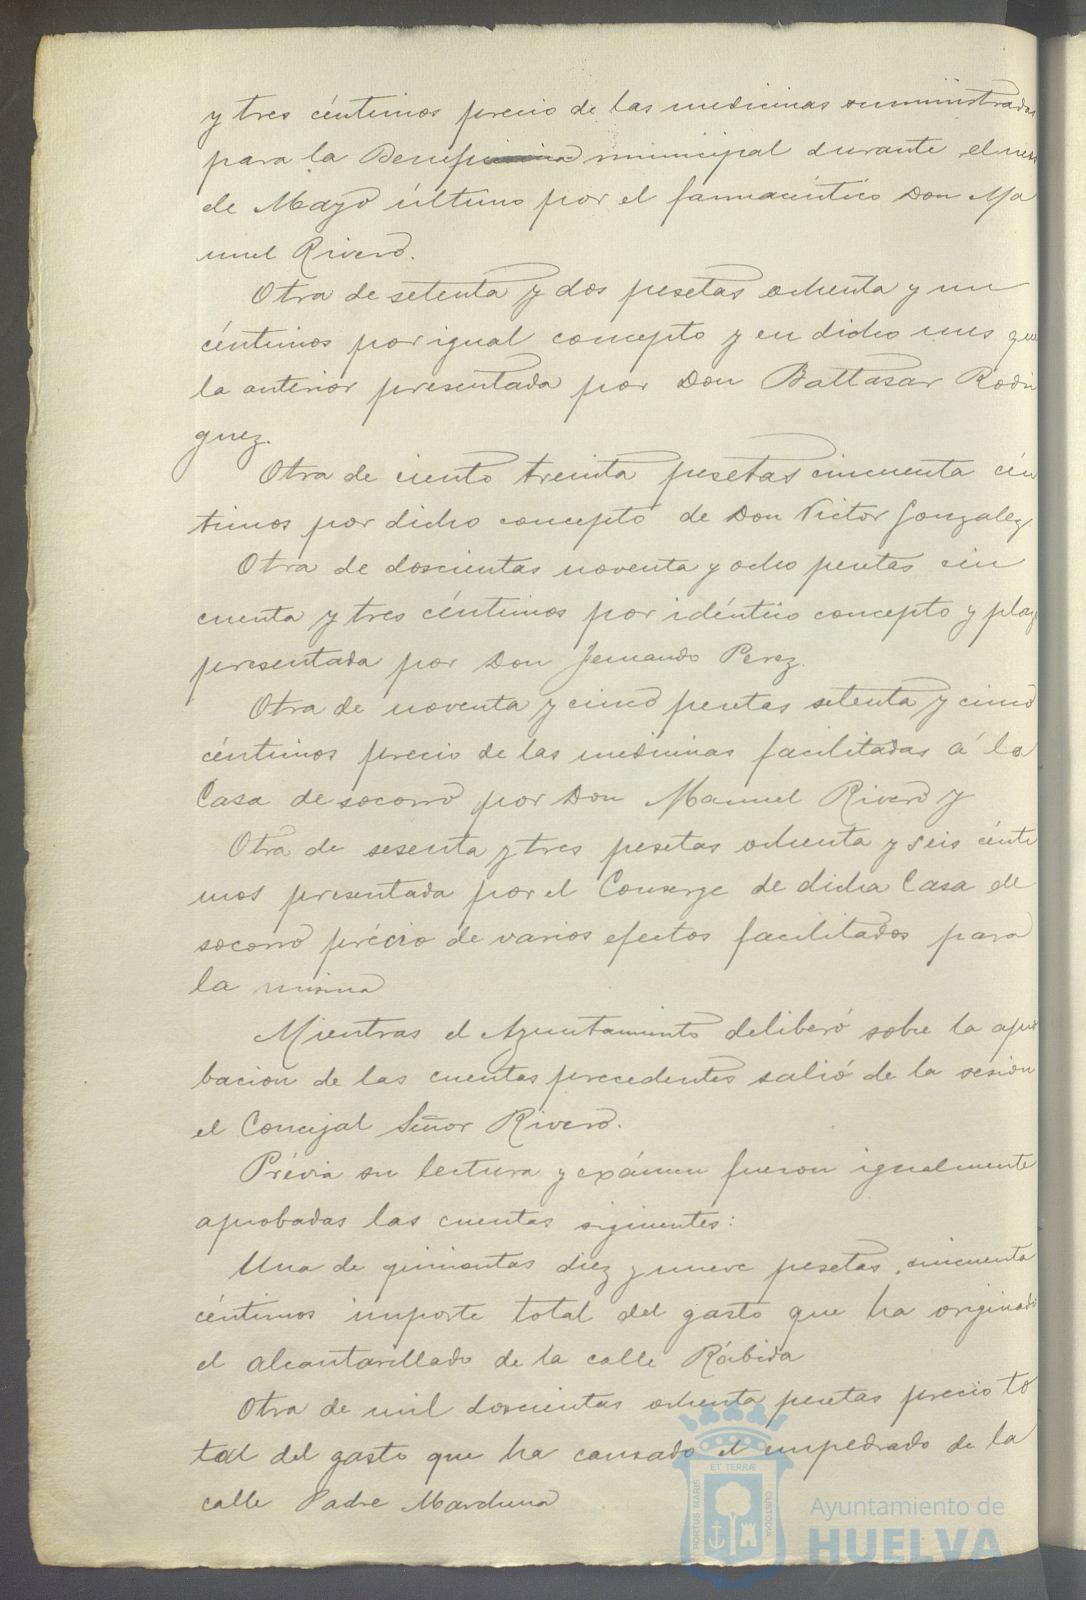 y tres céntimos precio de las medicinas suministradas
para la Beneficencia municipal durante el mes
de Mayo último por el farmacéutico Don Ma
nuel Rivero.
Otra de setenta y dos pesetas ochenta y un
céntimos por igual concepto y en dicho mes que
la anterior presentada por Don Baltasar Rodri
guez.
Otra de ciento treinta pesetas cincuenta cén
timos por dicho concepto de Don Victor Gonzalez
Otra de doscientas noventa y ocho pesetas cin
cuenta y tres céntimos por idéntico concepto y plazo
presentada por Don Fernando Perez.
Otra de noventa y cinco pesetas setenta y cinco
céntimos precio de las medicinas facilitadas á la
Casa de socorro por Don Manuel Rivero y
Otra de sesenta y tres pesetas ochenta y seis cénti
mos presentada por el Conserge de dicha Casa de
socorro précio de varios efectos facilitados para
la misma
Mientras el Ayuntamiento deliberó sobre la apro
bacion de las cuentas precedentes salió de la sesion
el Concejal Señor Rivero.
Prévia su lectura y exámen fueron igualmente
aprobadas las cuentas siguientes:
Una de quinientas diez y nueve pesetas, cincuenta
céntimos importe total del gasto que ha originado
el alcantarillado de la calle Rábida
Otra de mil doscientas ochenta pesetas precio to
tal del gasto que ha causado el empedrado de la
calle Padre Marchena
PORTUS MARIS
ET TERRÆ
CUSTODIA
Ayuntamiento de
HUELVA